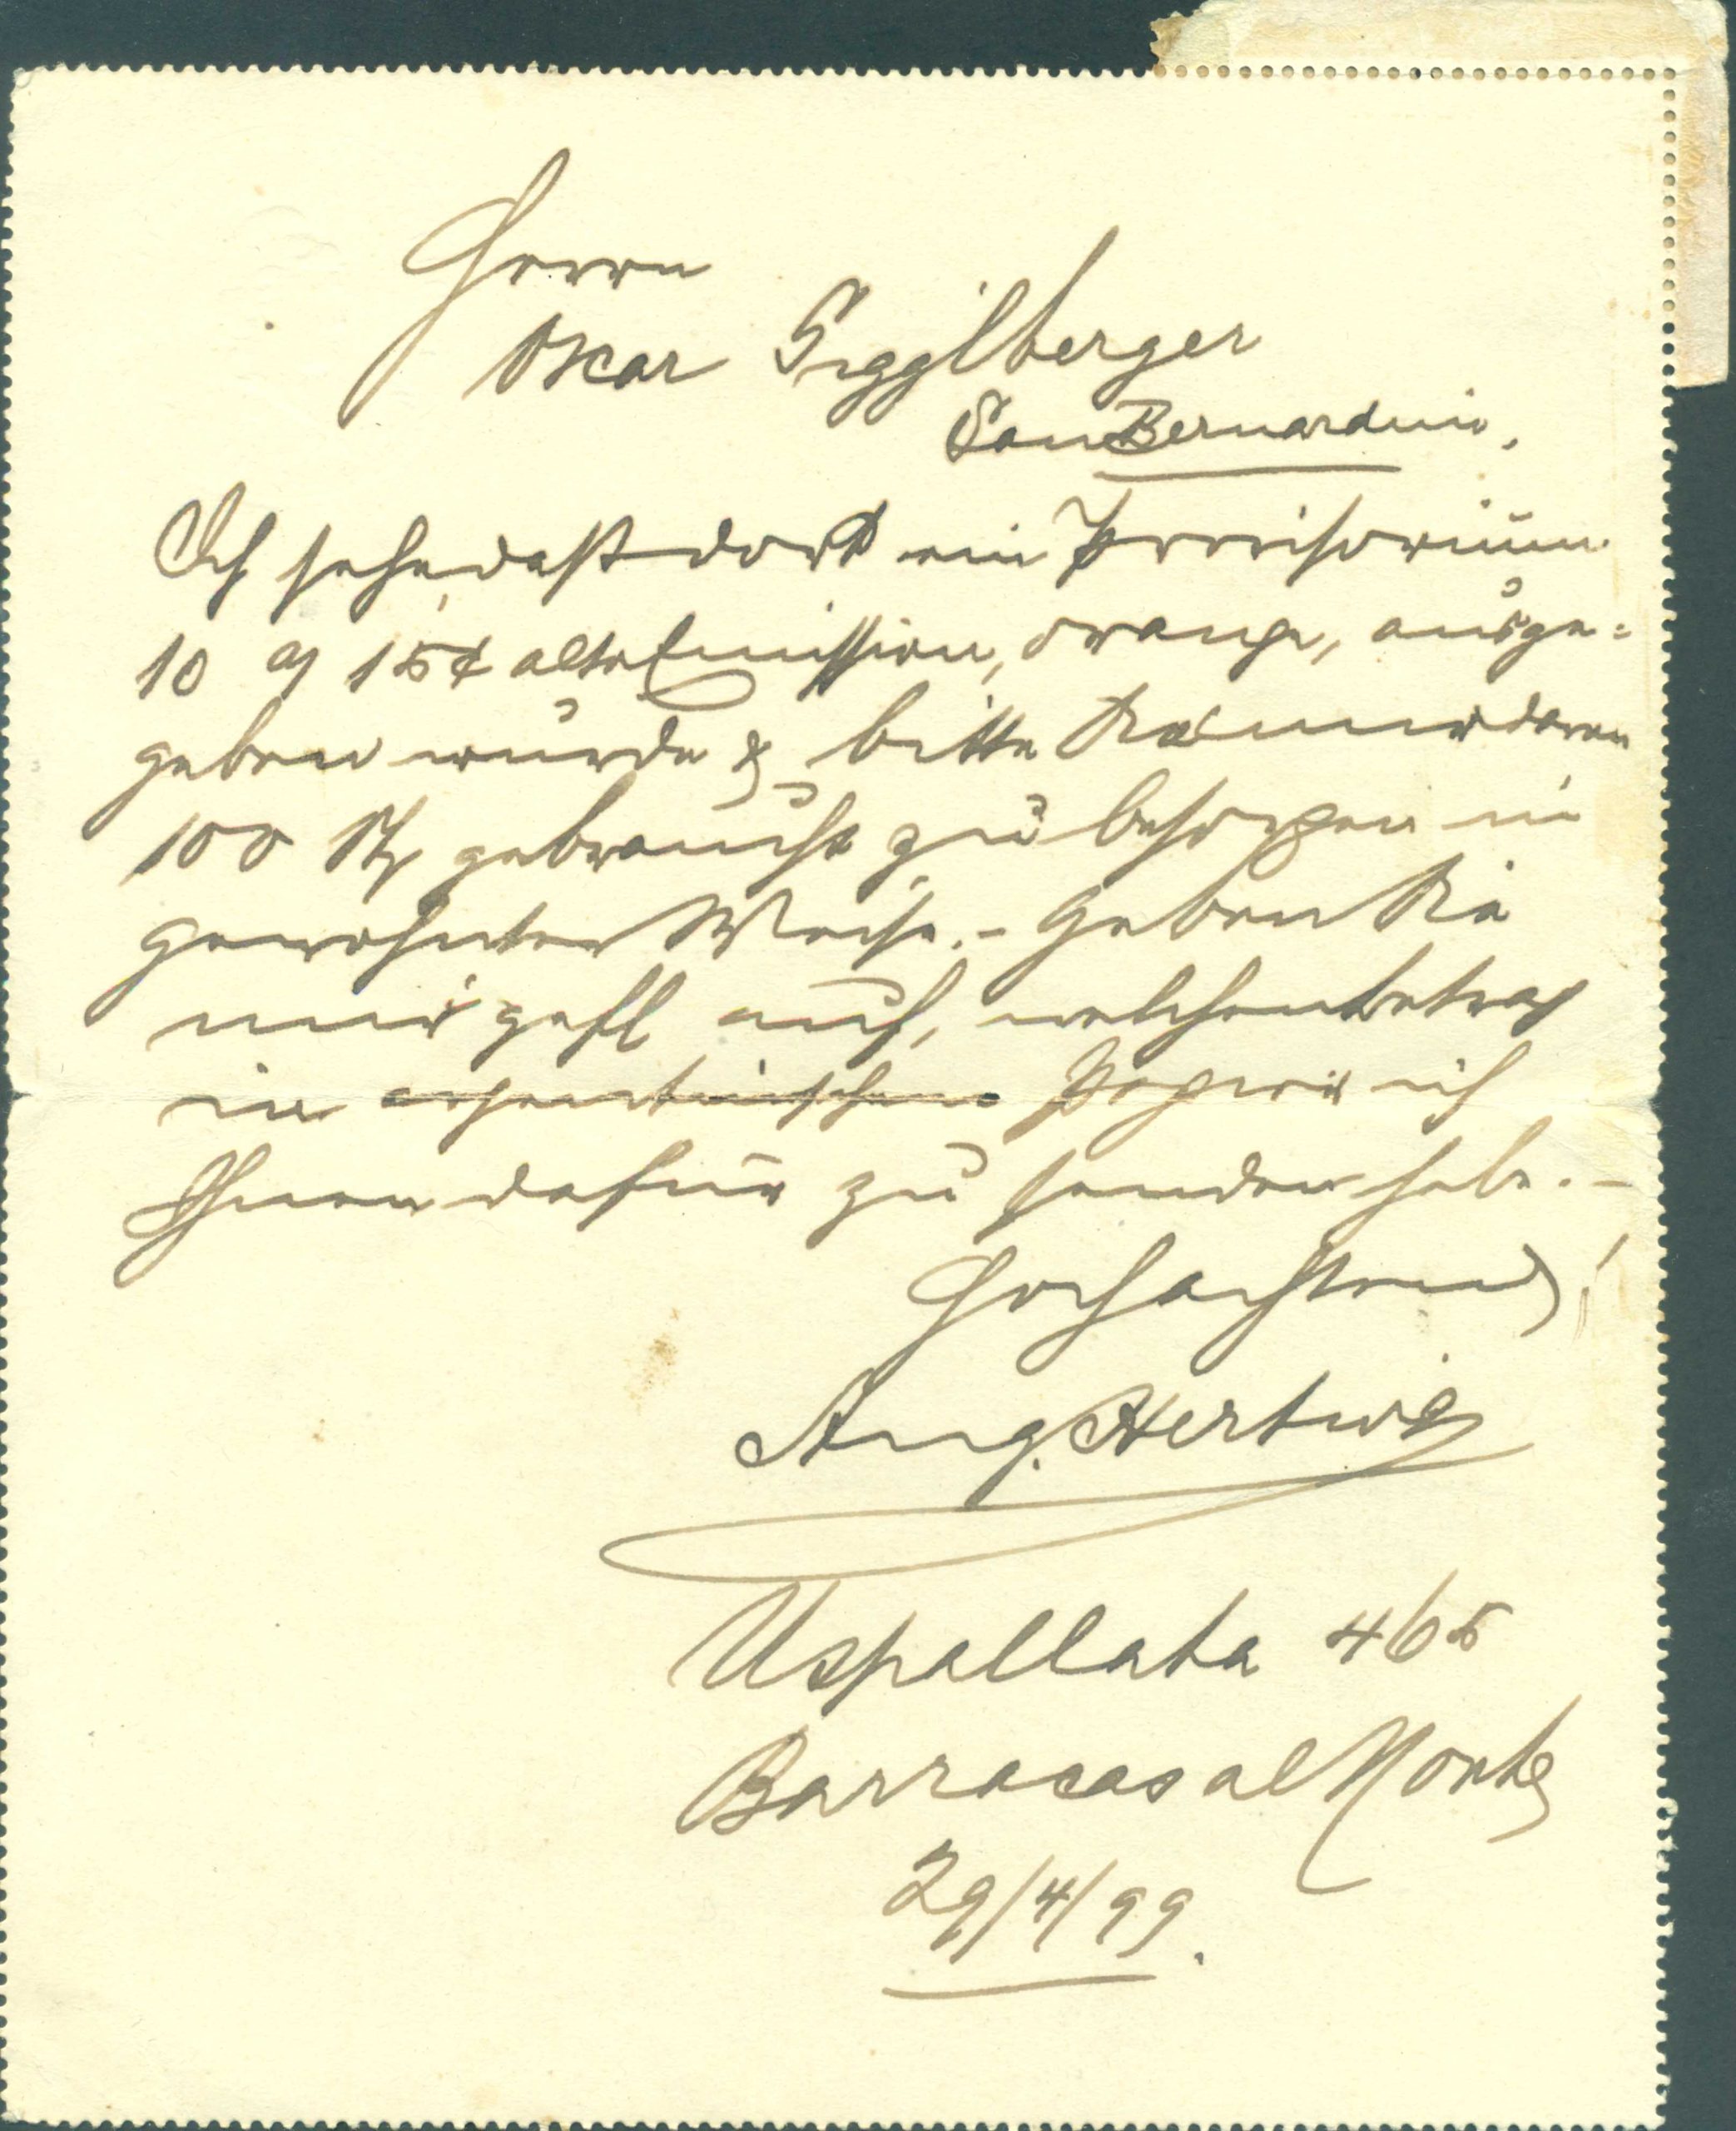 Herrn
Oskar Siggelberger
San Bernardino.
Ich sehe, daß dort ein Provisorium
10 a/ 15 ¢ alte Emission, orange, ausge=
geben wurde & bitte Sie mir davon
100 St. gebraucht zu besorgen in
gewohnter Weise. - Geben Sie
mir gefl. auf, welchen Betrag
in argentinischem Papier ich
Ihnen dafür zu senden habe. -
Hochachtend!
Aug. Hertwig
Uspallata 465
Barracas al Norte
29/4/99.